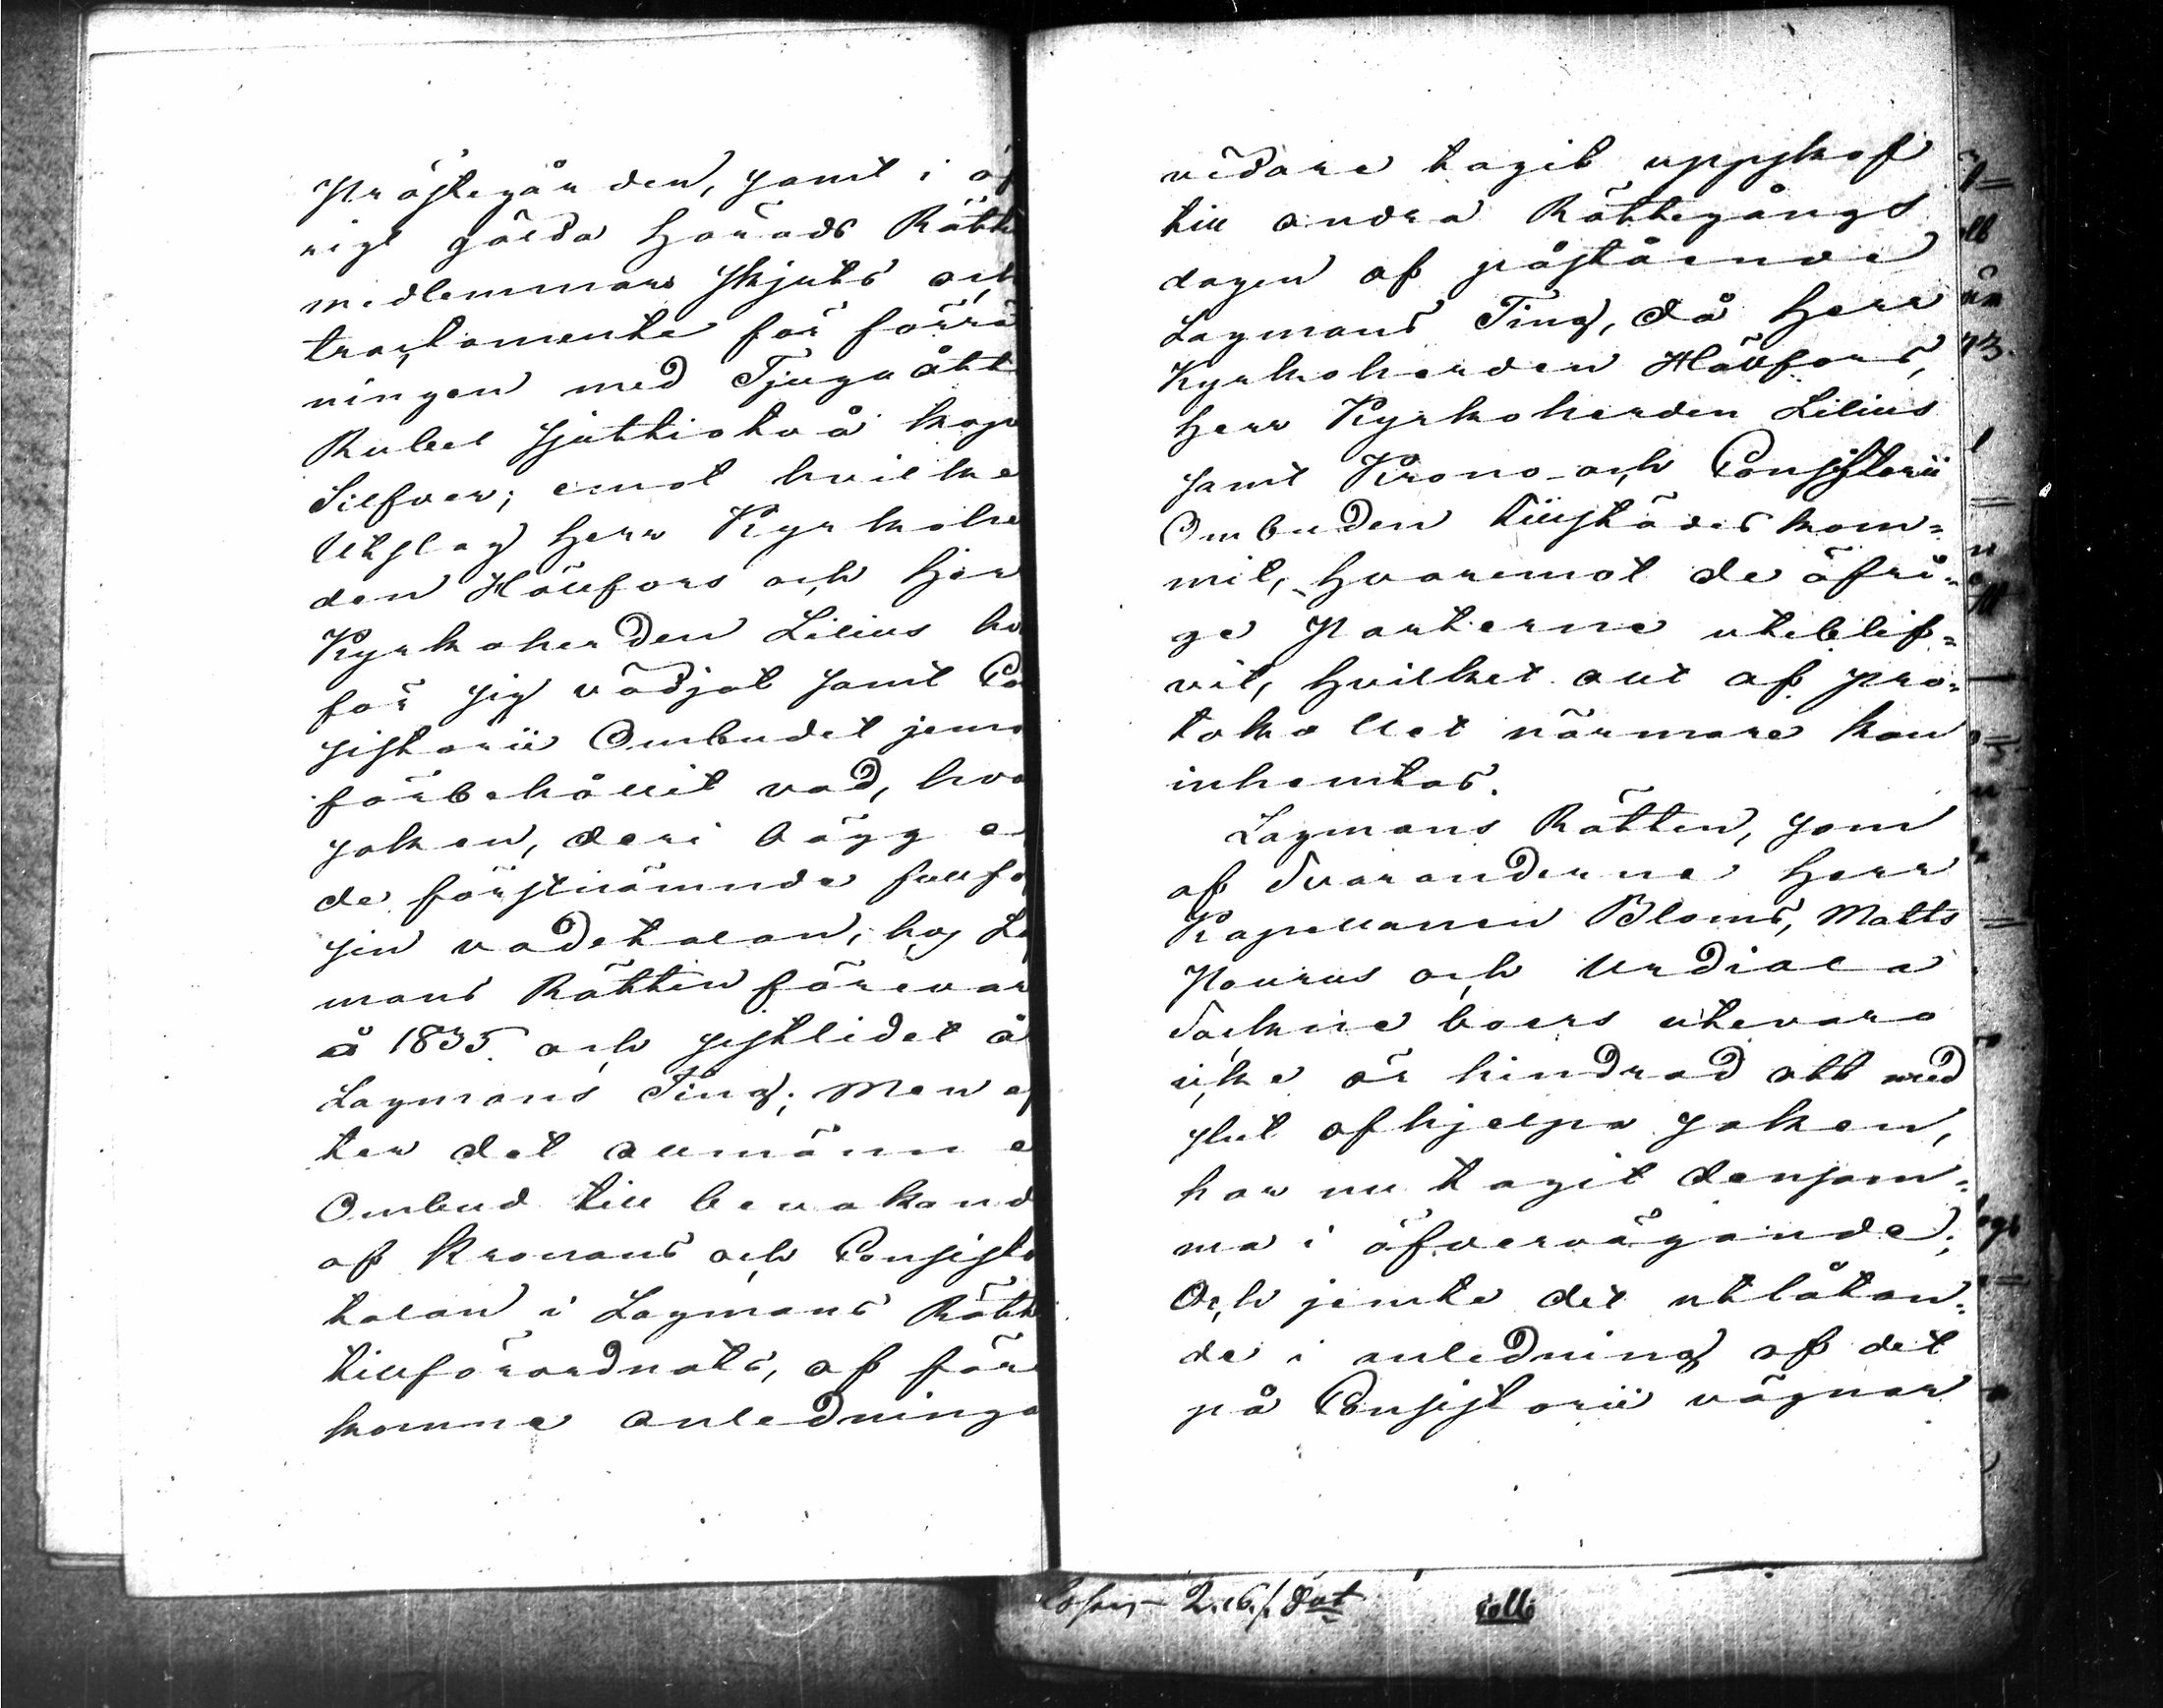 Prästegården, samt i öf
rigt gälda Härads Rätte
medlemmars skjuts och
tractamente för förrä
ningen med Tjuguått
Rubel sjuttiotvå kop
Silfver; emot hvilke
Utslag Herr Kyrkohe
den Hällfors och Her
Kyrkoherden Lilius hva
för sig vädjat samt Co
sistorii Ombudet jemv
förbehållit vad, hva
saken, deri bägge
de förstnämnde fullfö
sin vadetalan, hos La
mans Rätten förevar
å 1835 och sistlidet å
Lagmans Ting; men ef
ter det allmänne
Ombud till bevakand
af Kronans och Consisto
talan i Lagmans Rätte
tillförordnats, af före
komne anledninga
vidare tagit uppskof
till andra Rättegångs
dagen af påstående
Lagmans Ting, då Herr
Kyrkoherden Hällfors,
Herr Kyrkoherden Lilius
samt Krono- och Consistorii
Ombuden tillstädes kom=
mit, hvaremot de öfri=
ge Parterne uteblif=
vit, hvilket allt af pro=
tokollet närmare kan
inhemtas.
Lagmans Rätten, som
af Svaranderne Herr
Kapellanen Bloms, Matts
Paurus och Urdiala
Sockne boers utevaro
icke är hindrad att med
slut afhjelpa saken,
har nu tagit densam=
ma i öfvervägande;
Och jemte det utlåtan=
de i anledning af det
på Consistorii vägnar